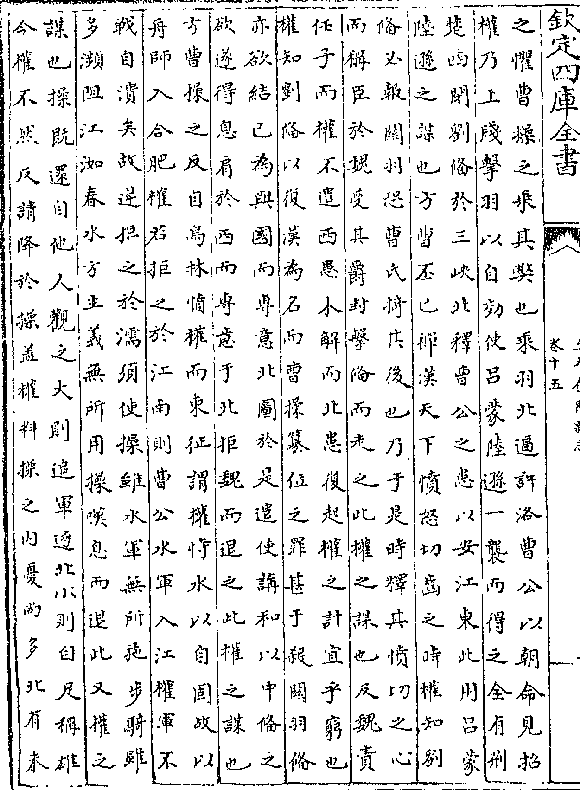 欽定四庫全書
卷十五
之懼曹操之乗其弊也乘羽北逼許洛曹公以朝命見招
權乃上牋擊羽以自効使吕蒙陸遜一襲而得之全有荆
楚西閉劉備於三峽北釋曹公之患以安江東此用吕蒙
陸遜之謀也方曹丕已禪漢天下憤怒切齒之時權知劉
備必報關羽恐曹氏犄其後也乃于是時釋其憤切之心
而稱臣於魏受其爵封擊備而走之此權之謀也及魏責
任子而權不遣西患未解而北患復起權之計宜乎窮也
權知劉備以復漢為名而曹操篡位之罪甚于殺關羽備
亦欲結已為與國而專意北圖於是遣使講和以中備之
欲遂得息肩於西而專意于北拒魏而退之此權之謀也
方曹操之反自烏林憤權而東征謂權恃水以自固故以
舟師入合肥權若拒之於江南則曹公水軍入江權軍不
戰自潰矣故逆拒之於濡須使操雖水軍無所施步騎雖
多瀕阻江洳春水方生義無所用操嘆息而退此又權之
謀也操既還自他人觀之大則追軍逐北小則自尺稱雄
今權不然反請降於操蓋權料操之内憂尚多北有未